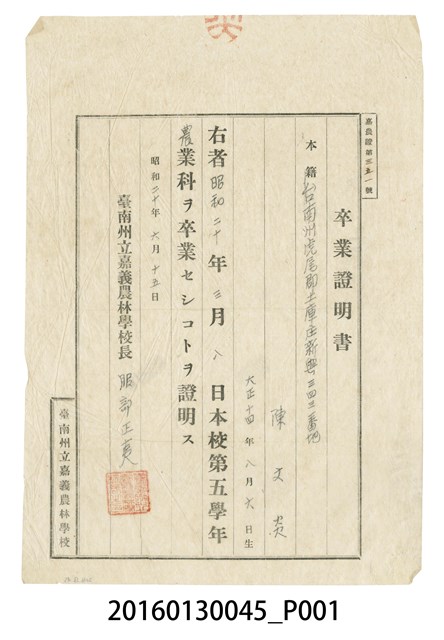 嘉農證第三五一號
卒業證明書
本籍 台南州虎尾郡土庫庄新興三四三番地
陳文炎
大正十四年八月六日生
右者昭和二十年三月八日本校第五學年
農業科ヲ卒業セシコトヲ證明ス
昭和二十年六月十五日
臺南州立嘉義農林學校長 服部正
臺南州立嘉義農林學校
20160130045_P001